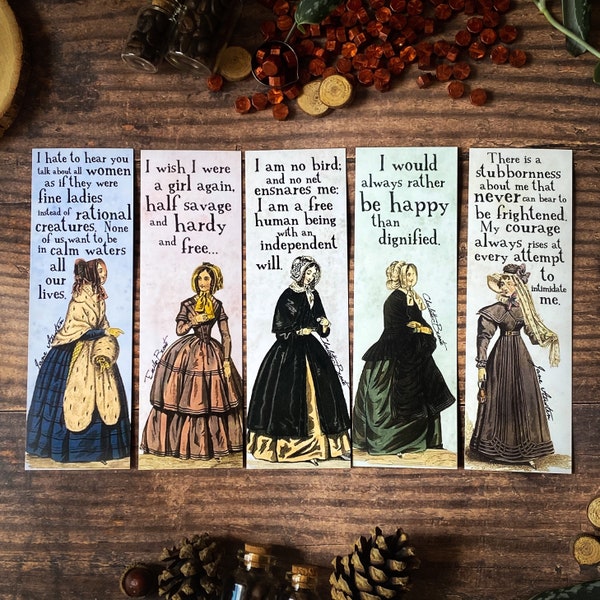 I hate to hear you
talk about all women
as if they were
fine ladies
instead of rational
creatures. None
of us want to be
in calm waters
all
our
lives.
Jane Austen
I wish I were
a girl again,
half savage
and hardy
and free...
I am no bird;
and no net
ensnares me;
I am a free
human being
with an
independent
will.
Charlotte Brontë
I would
always rather
be happy
than
dignified.
Charlotte Brontë
There is a
stubbornness
about me that
never can bear to
be frightened.
My courage
always rises at
every attempt
to
intimidate
me.
Jane Austen